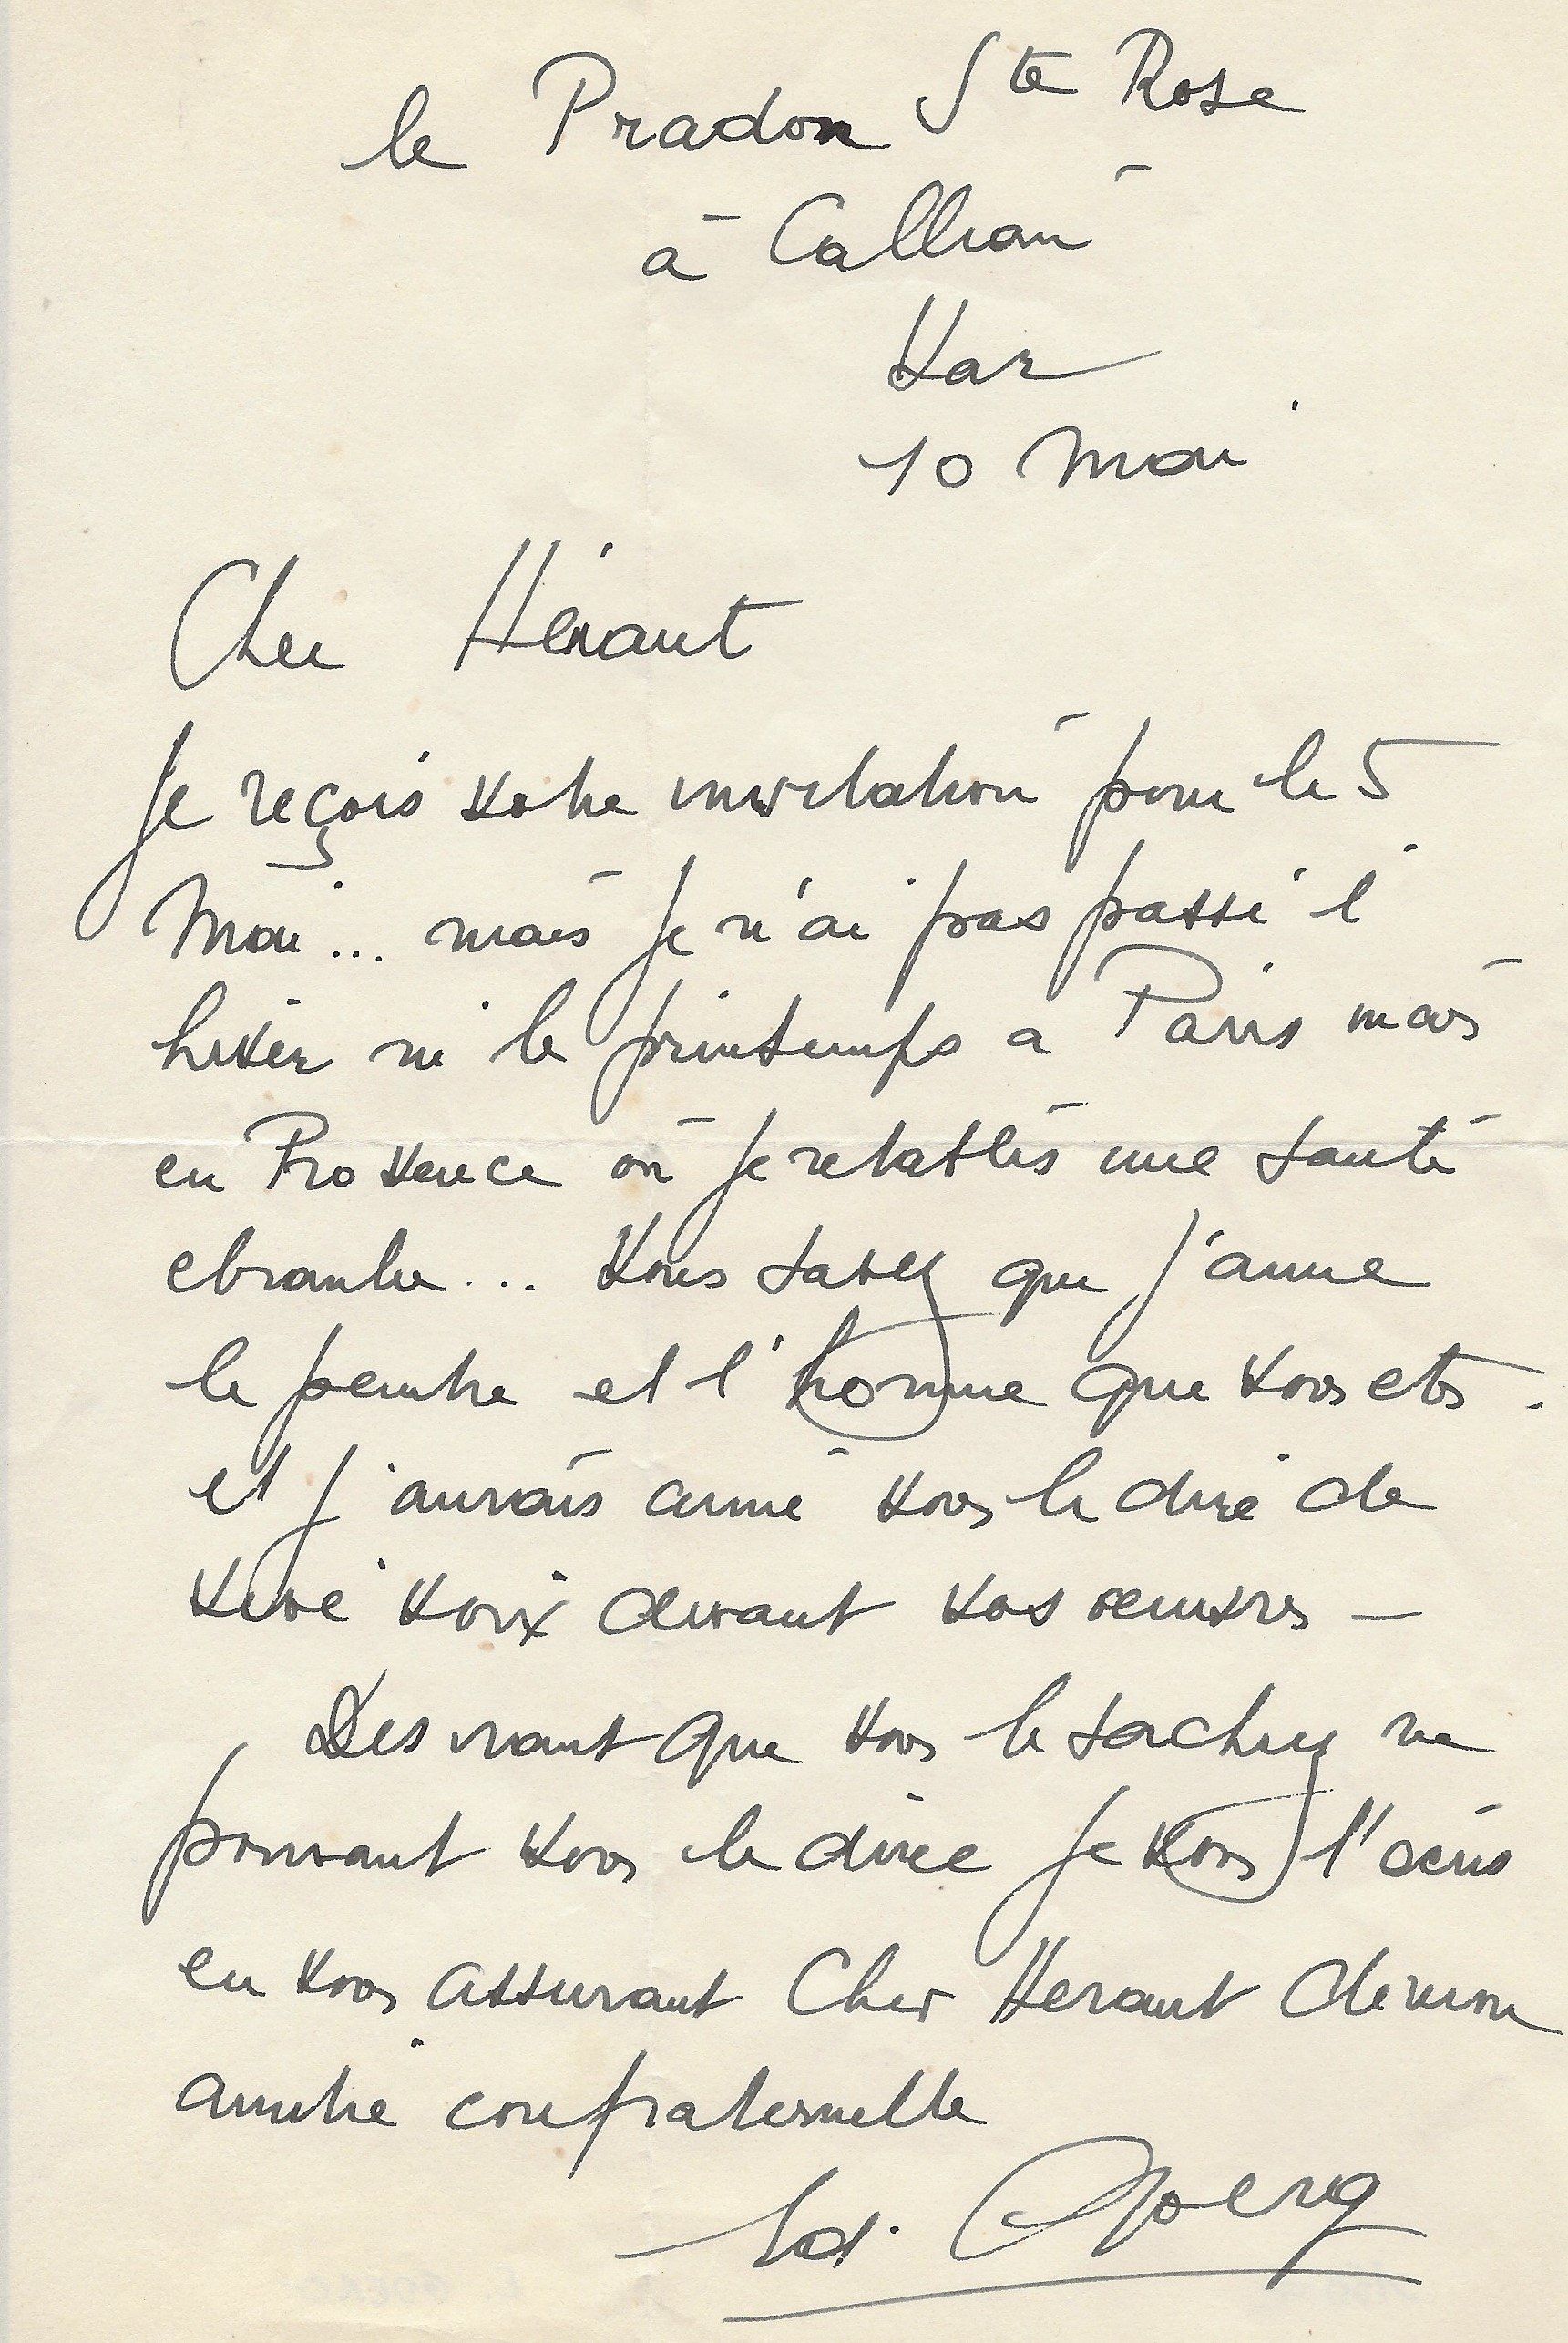 le Pradon Ste Rose
à Callian
Var
10 Mai
Cher Héraut
Je reçois votre invitation pour le 5
Mai... mais je n'ai pas passé l'
hiver ni le printemps a Paris mais
en Provence où je rétablis une santé
ebranlée... Vous savez que j'aime
le peintre et l'homme que vous etes.
et j'aurais aimé vous le dire de
vive voix devant vos oeuvres –
Desirant que vous le sachiez ne
pouvant vous le dire je vous l'écris
en vous assurant Cher Heraut de mon
amitié confraternelle
Ed. Goerg